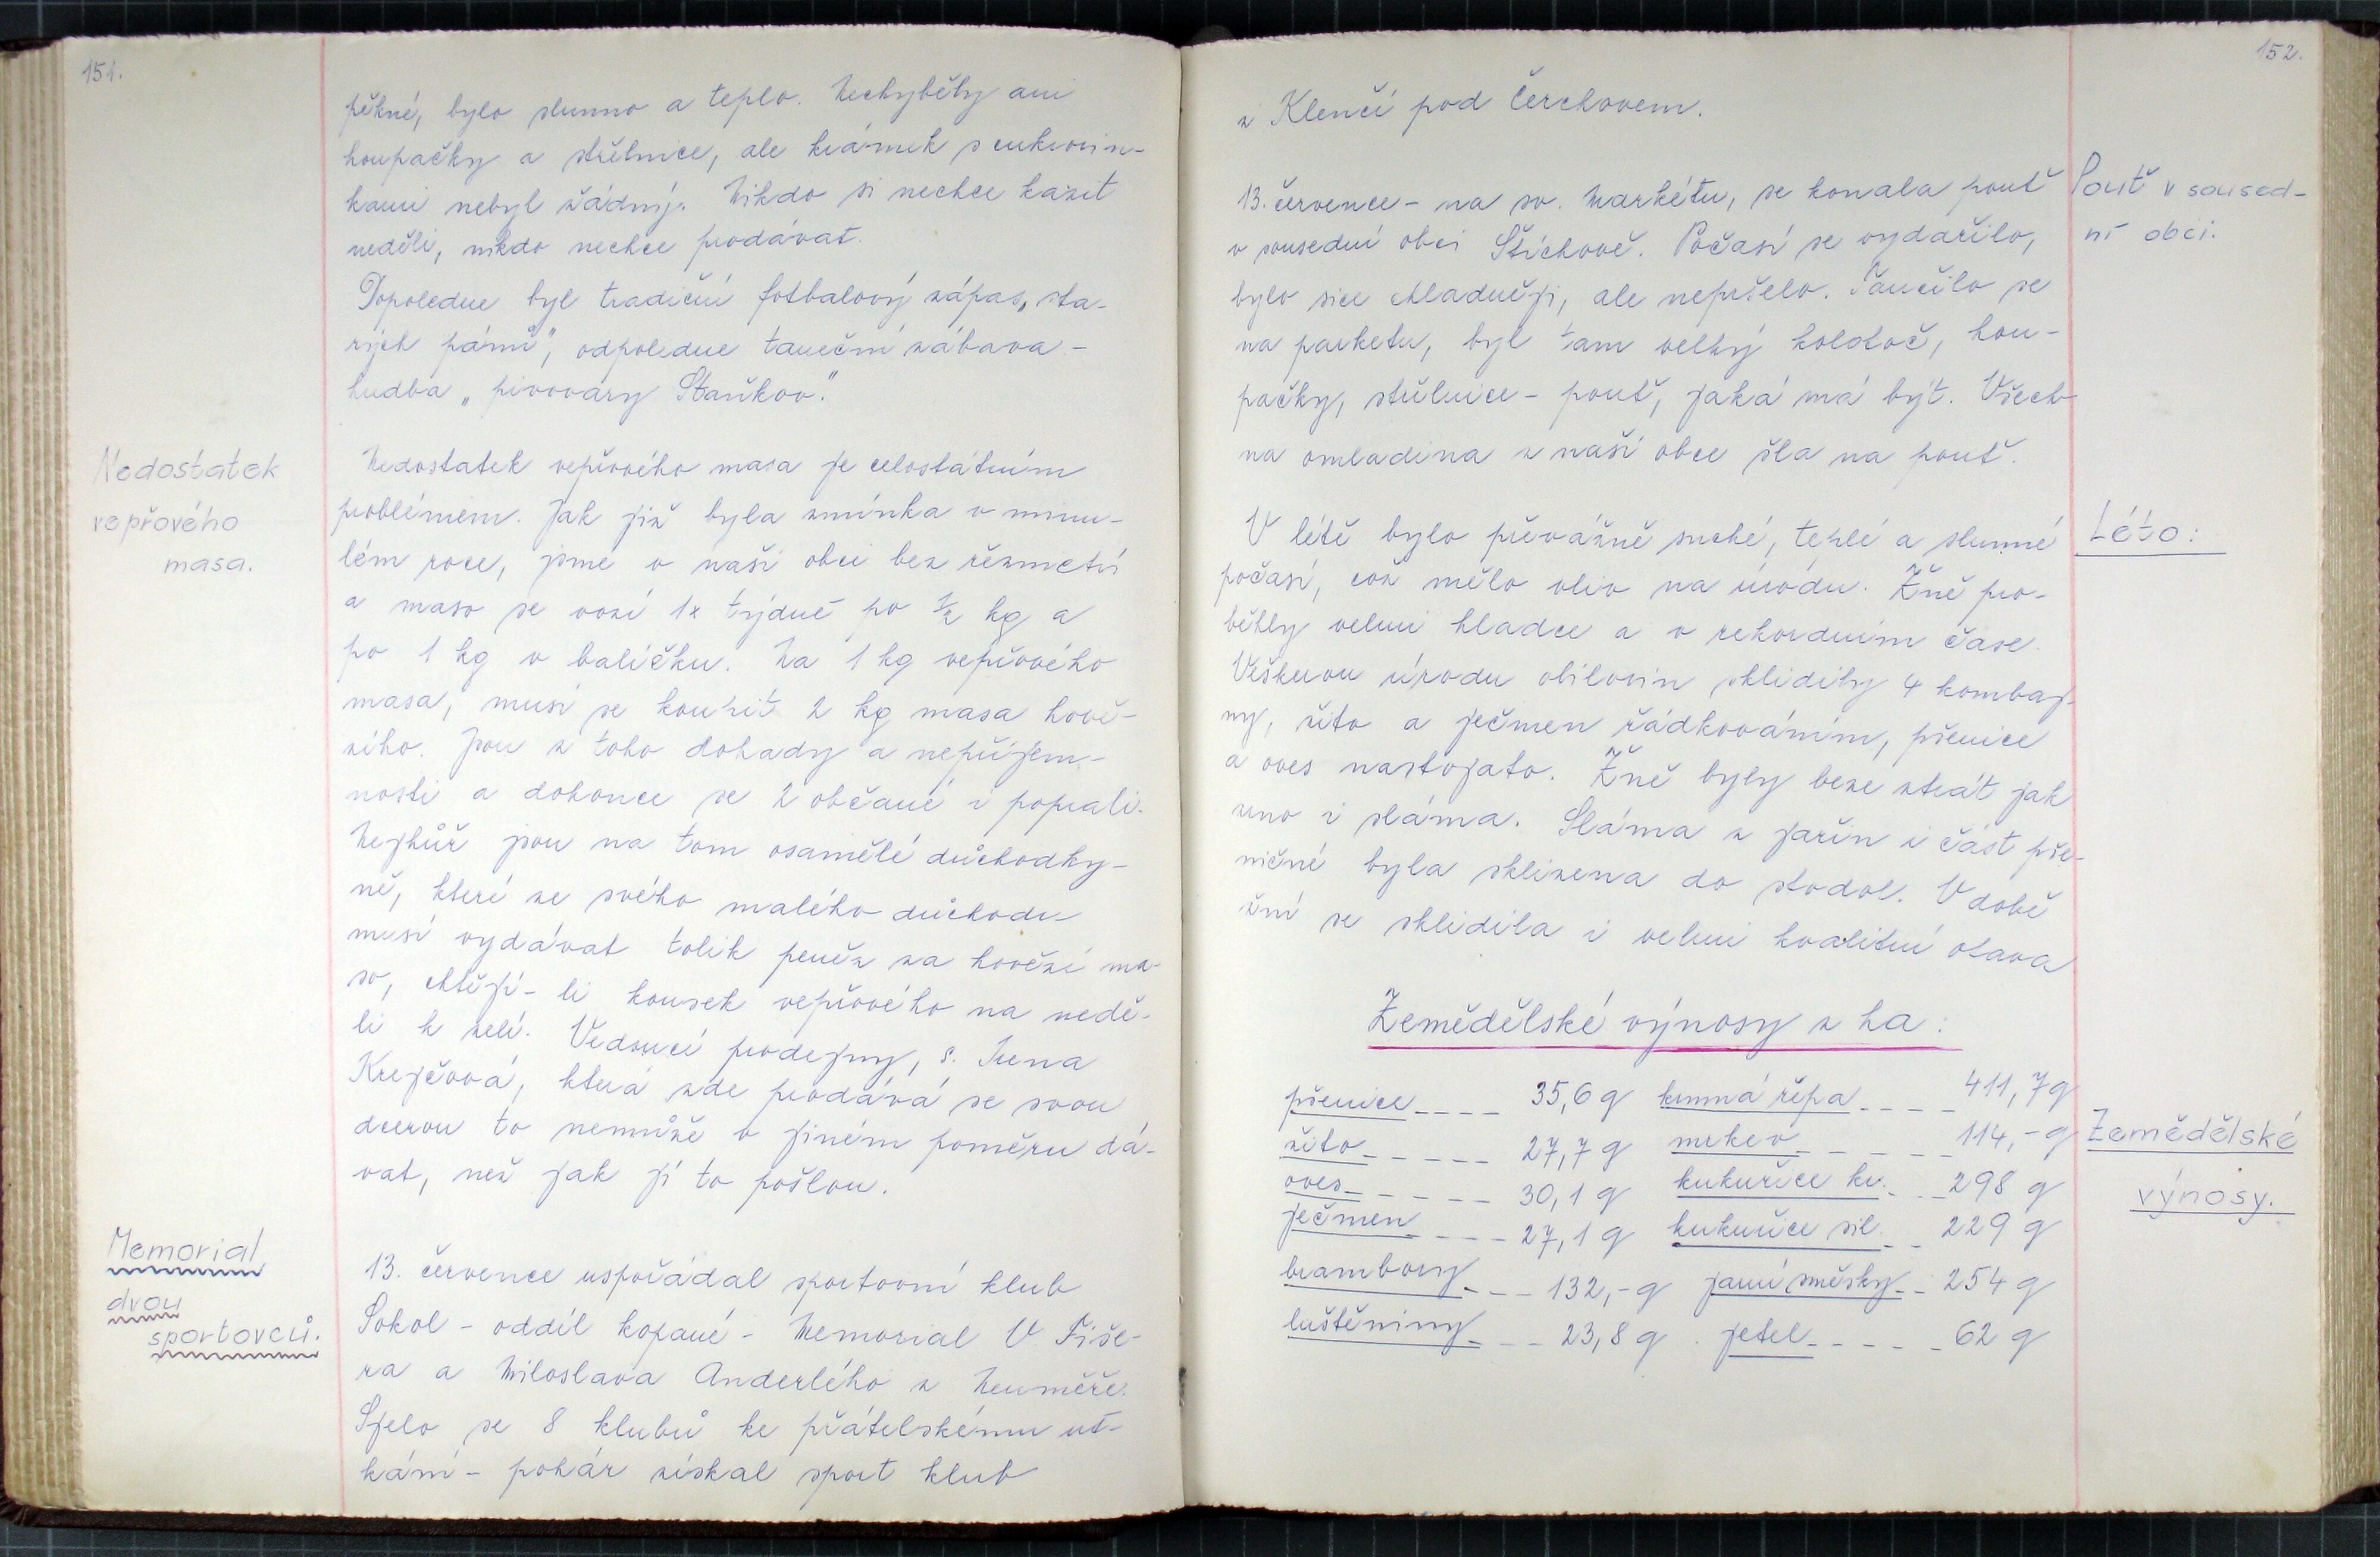 151.
pěkné, bylo slunno a teplo. Nechyběly ani
houpačky a střelnice, ale krámek s cukrovin-
kami nebyl žádný. Nikdo si nechce kazit
neděli, nikdo nechce prodávat.
Dopoledne byl tradiční fotbalový zápas „sta-
rých pánů", odpoledne taneční zábava -
hudba „pivovary Staňkov."
Nedostatek
vepřového
masa.
Nedostatek vepřového masa je celostátním
problémem. Jak již byla zmínka v minu-
lém roce, jsme v naší obci bez řeznictví
a maso se vozí 1x týdně po ½ kg a
po 1 kg v balíčku. Na 1 kg vepřového
masa, musí se koupit 2 kg masa hově-
zího. Jsou z toho dohady a nepříjem-
nosti a dokonce se 2 občané i poprali.
Nejhůř jsou na tom osamělé důchodky-
ně, které ze svého malého důchodu
musí vydávat tolik peněz za hovězí ma-
so, chtějí-li kousek vepřového na nedě-
li k zelí. Vedoucí prodejny, s. Irena
Krejčová, která zde prodává se svou
dcerou to nemůže v jiném poměru dá-
vat, než jak jí to pošlou.
Memorial
dvou
sportovců.
13. července uspořádal sportovní klub
Sokol - oddíl kopané - Memorial V. Fiše-
ra a Miloslava Anderlého z Neuměře.
Sjelo se 8 klubů ke přátelskému ut-
kání - pohár získal sport klub
152.
z Klenčí pod Čerchovem.
Pouť v soused-
ní obci.
13. července - na sv. Markétu, se konala pouť
v sousední obci Štichově. Počasí se vydařilo,
bylo sice chladněji, ale nepršelo. Tančilo se
na parketu, byl tam velký kolotoč, hou-
pačky, střelnice - pouť, jaká má být. Všech-
na omladina z naší obce šla na pouť.
Léto:
V létě bylo převážně suché, teplé a slunné
počasí, což mělo vliv na úrodu. Žně pro-
běhly velmi hladce a v rekordním čase.
Veškerou úrodu obilovin sklidily 4 kombaj-
ny, žito a ječmen řádkováním, pšenice
a oves nastojato. Žně byly beze ztrát jak
zrno i sláma. Sláma z jařin i část pše-
ničné byla sklizena do stodol. V době
žní se sklidila i velmi kvalitní otava
Zemědělské výnosy z ha:
Zemědělské
výnosy.
pšenice ---- 35,6 q krmná řepa ---- 411,7 q
žito ----- 27,7 q mrkev ----- 114,- q
oves ----- 30,1 q kukuřice kr. --- 298 q
ječmen ---- 27,1 q kukuřice sil. -- 229 q
brambory --- 132,- q jarní směsky -- 254 q
luštěniny --- 23,8 q jetel ----- 62 q